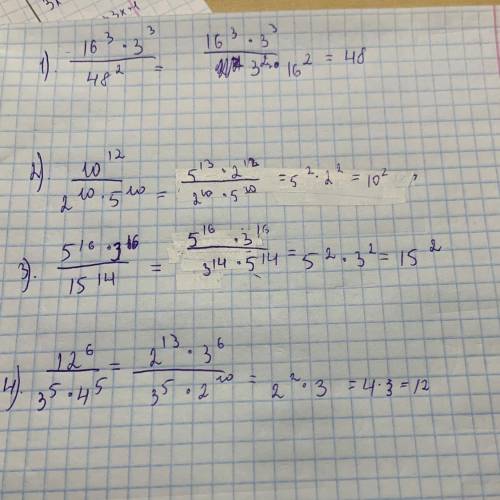 3x -3x+1
1). 16³ · 3³ / 48² = 16³ · 3³ / 3² · 16² = 48
2). 10¹² / 2¹⁰ · 5¹⁰ = 5¹³ · 2¹² / 2¹⁰ · 5¹⁰ = 5² · 2² = 10²
3). 5¹⁶ · 3¹⁶ / 15¹⁴ = 5¹⁶ · 3¹⁶ / 3¹⁴ · 5¹⁴ = 5² · 3² = 15²
4). 12⁶ / 3⁵ · 4⁵ = 2¹³ · 3⁶ / 3⁵ · 2¹⁰ = 2² · 3 = 4·3 = 12